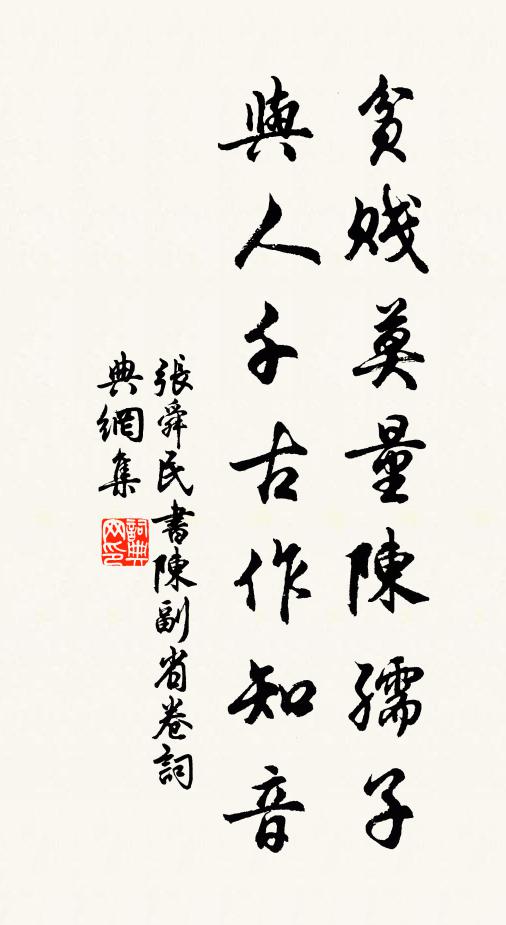 貧賤莫量陳孺子
與人千古作知音
張舜民書陳副省卷詞
典網集
詞典网印